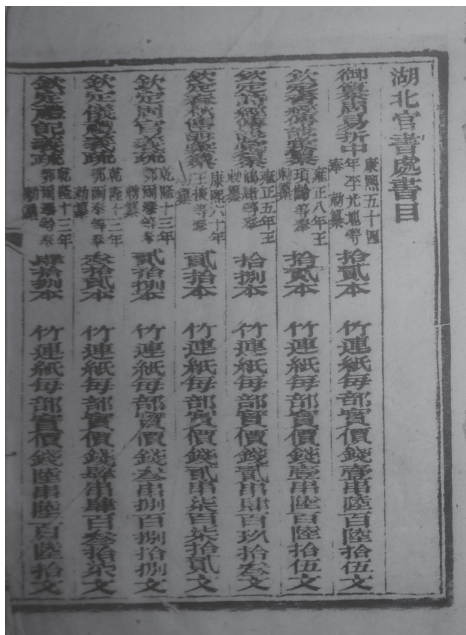 湖北官書處書目
御纂周易折中 康熙五十四年李光地等奉敕纂 拾貳本 竹連紙每部實價錢壹串陸百陸拾伍文
欽定書經傳說彙纂 雍正八年王頊齡等奉敕纂 拾貳本 竹連紙每部實價錢壹串陸百陸拾伍文
欽定詩經傳說彙纂 雍正五年王鴻緒等奉敕纂 拾捌本 竹連紙每部實價錢貳串肆百玖拾叁文
欽定春秋傳說彙纂 康熙六十年王掞等奉敕纂 貳拾本 竹連紙每部實價錢貳串柒百柒拾貳文
欽定周官義疏 乾隆十三年鄂爾泰等奉敕纂 貳拾捌本 竹連紙每部實價錢叁串捌百捌拾捌文
欽定儀禮義疏 乾隆十三年鄂爾泰等奉敕纂 叁拾貳本 竹連紙每部實價錢肆串肆百叁拾柒文
欽定禮記義疏 乾隆十三年鄂爾泰等奉敕纂 肆拾捌本 竹連紙每部實價錢陸串陸百陸拾文